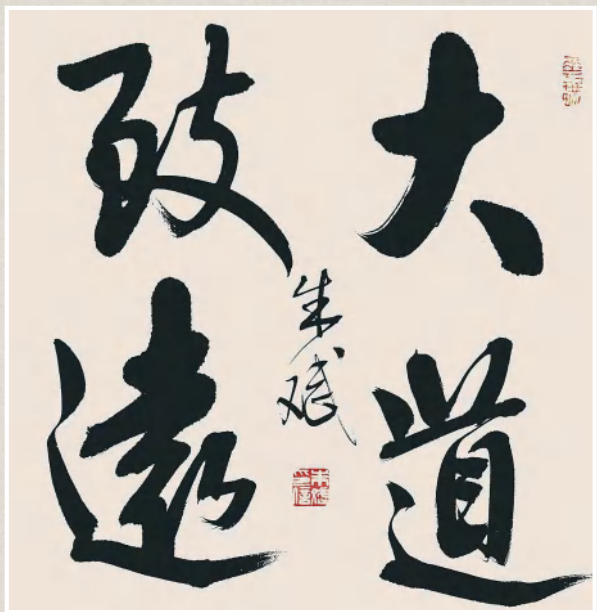 大道
致遠
朱斌